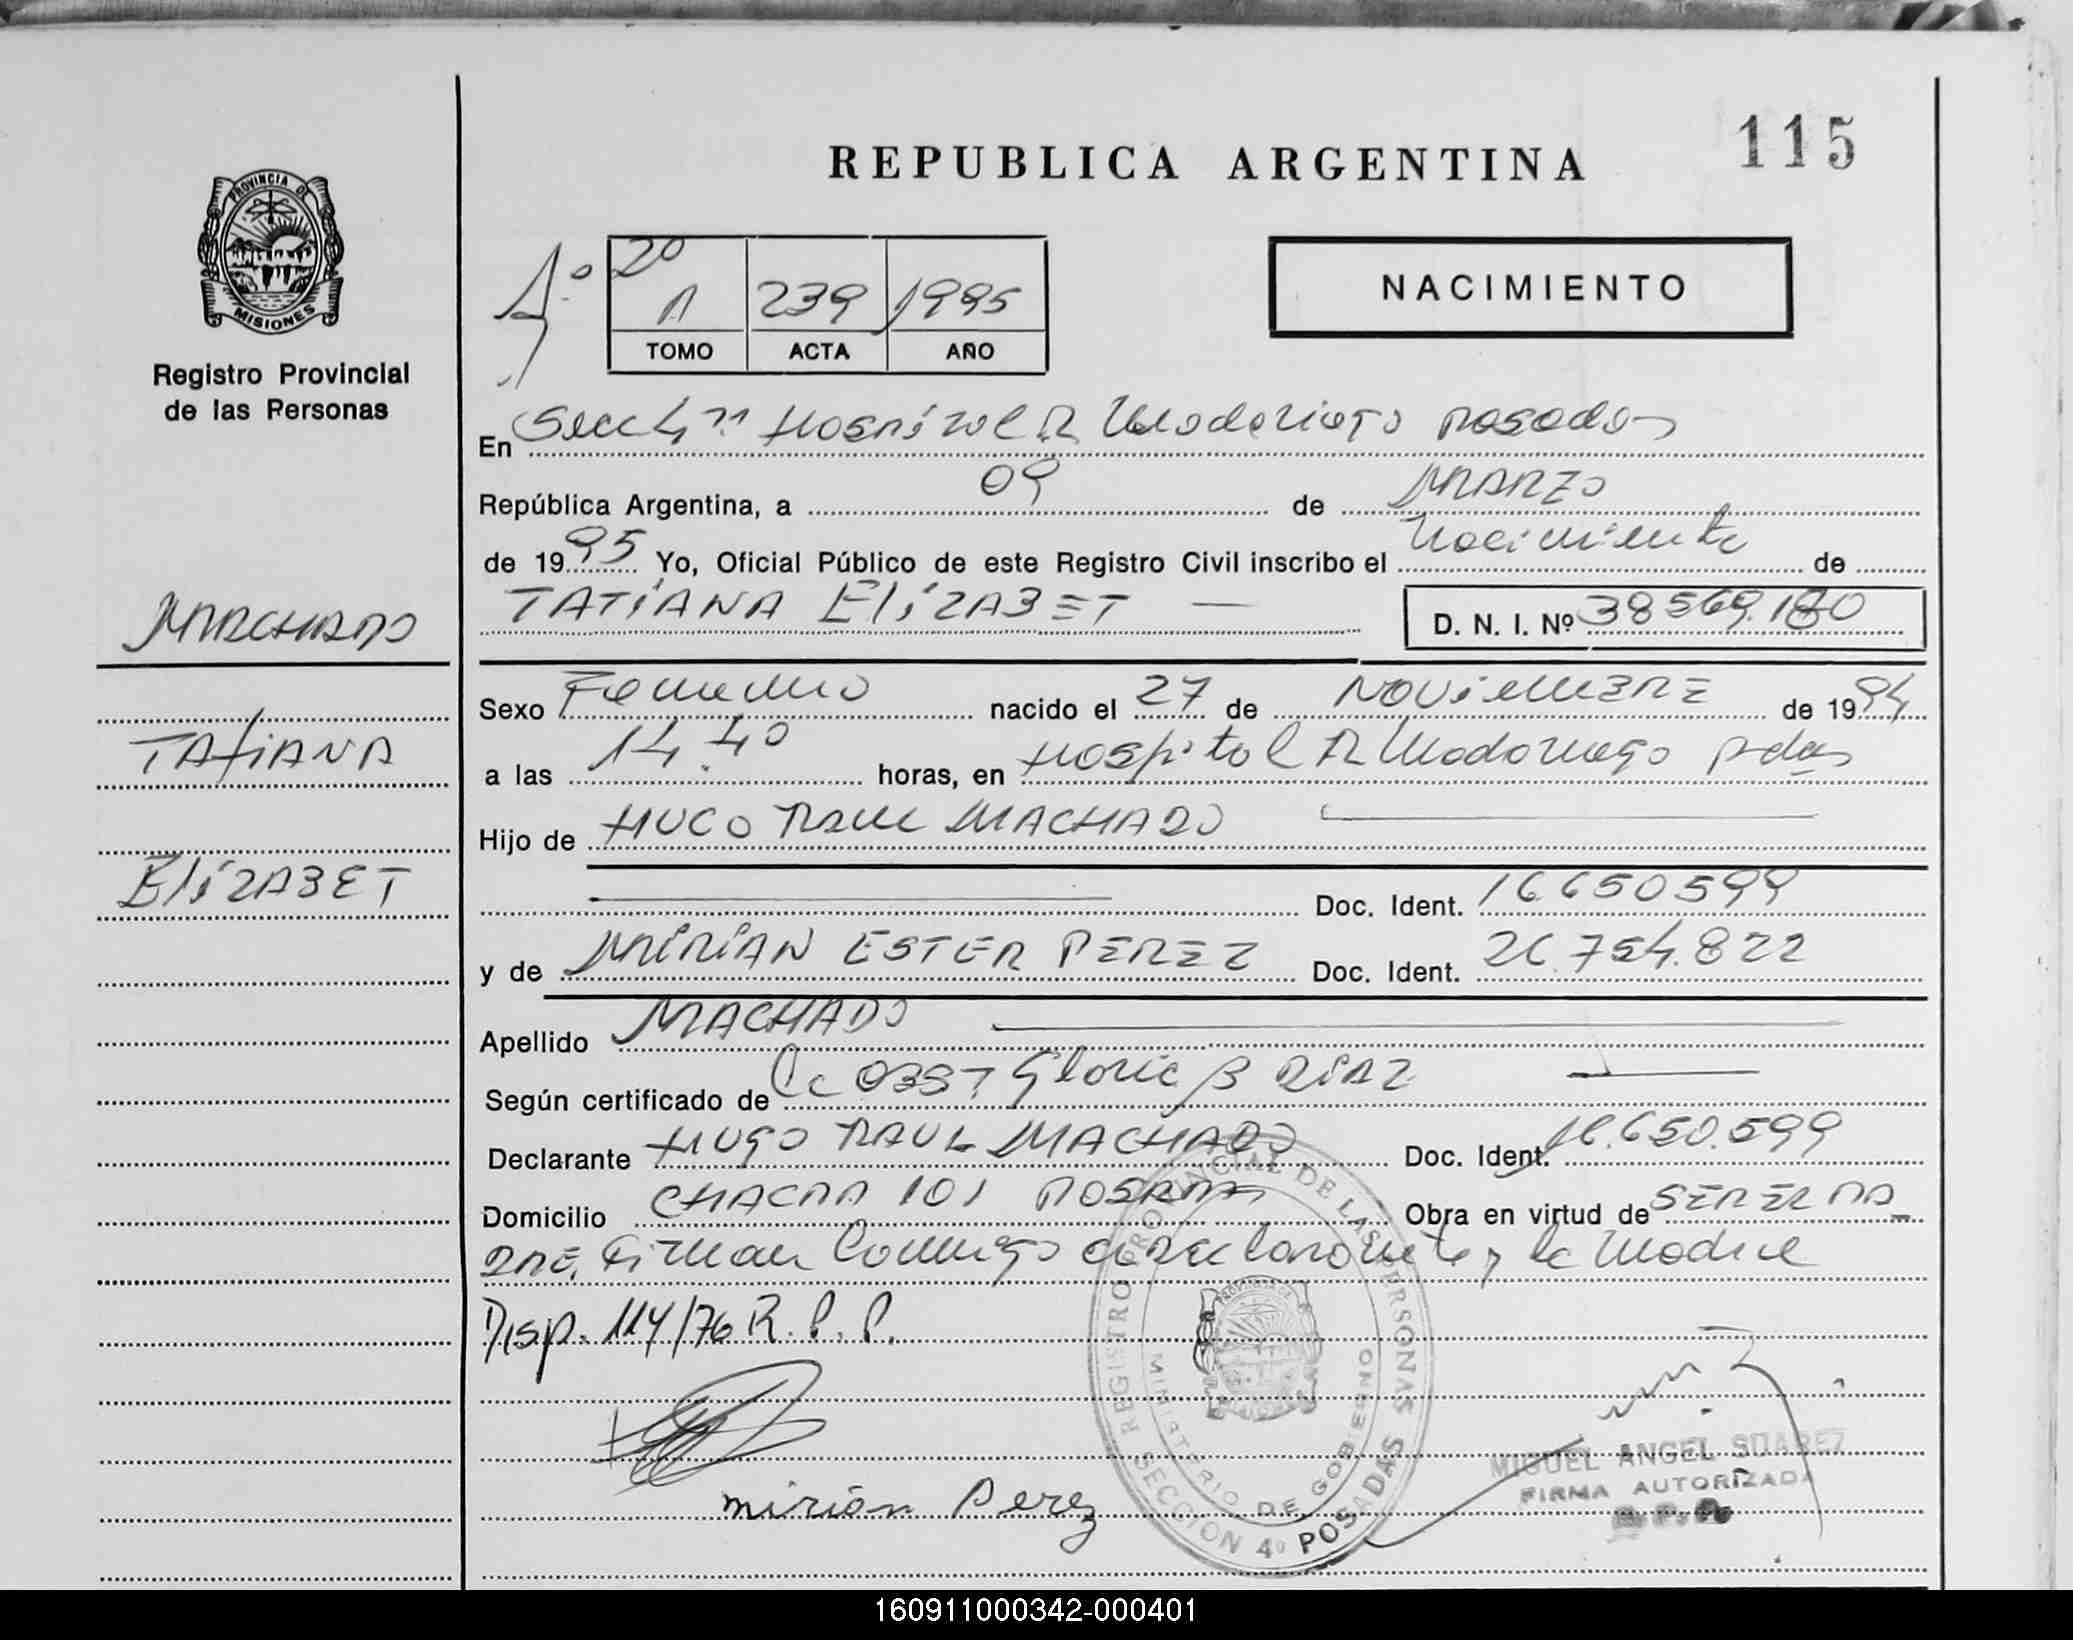 115
REPUBLICA ARGENTINA
PROVINCIA DE MISIONES
Registro Provincial
de las Personas
2º
A 239 1995
TOMO ACTA AÑO
NACIMIENTO
En Secc 4ª Hospital R Madariaga Posadas
República Argentina, a 09 de MARZO
de 1995 Yo, Oficial Público de este Registro Civil inscribo el Nacimiento de
TATIANA ELIZABET — D. N. I. Nº 38569.180
MACHADO
TATIANA
ELIZABET
Sexo Femenino nacido el 27 de NOVIEMBRE de 1994
a las 14.40 horas, en Hospital R Madariaga Pdas
Hijo de HUGO RAUL MACHADO
Doc. Ident. 16650599
y de MIRIAN ESTER PEREZ Doc. Ident. 26.754.822
Apellido MACHADO
Según certificado de La OBST Gloria B DIAZ
Declarante HUGO RAUL MACHADO Doc. Ident. 16.650.599
Domicilio CHACRA 101 POSADAS Obra en virtud de SER EL PA
DRE, Firman Conmigo el declarante y la Madre
Disp. 114/76 R.P.P.
mirian Perez
REGISTRO PROVINCIAL DE LAS PERSONAS
MINISTERIO DE GOBIERNO
SECCION 4º POSADAS
MIGUEL ANGEL SUAREZ
FIRMA AUTORIZADA
160911000342-000401